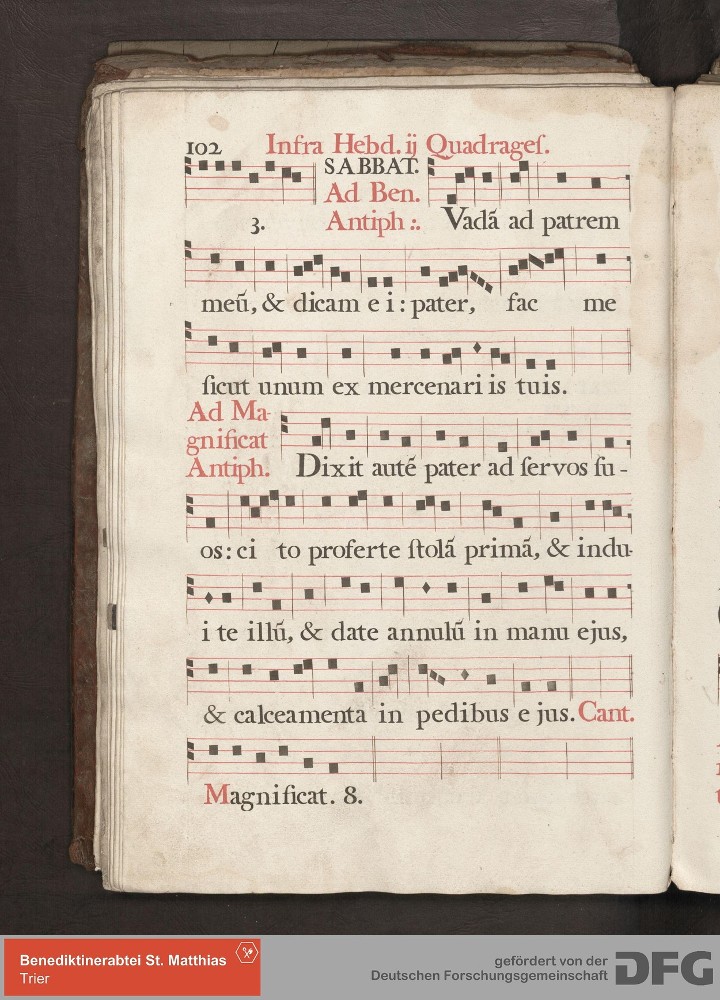 102 Infra Hebd. ij Quadrageſ.
SABBAT.
Ad Ben.
3. Antiph :. Vadã ad patrem
meũ, & dicam e i : pater, fac me
ſicut unum ex mercenari is tuis.
Ad Ma-
gnificat
Antiph. Dixit autẽ pater ad ſervos ſu -
os : ci to proferte ſtolã primã, & indu-
i te illũ, & date annulũ in manu ejus,
& calceamenta in pedibus e jus. Cant.
Magnificat. 8.
Benediktinerabtei St. Matthias
Trier
gefördert von der
Deutschen Forschungsgemeinschaft
DFG